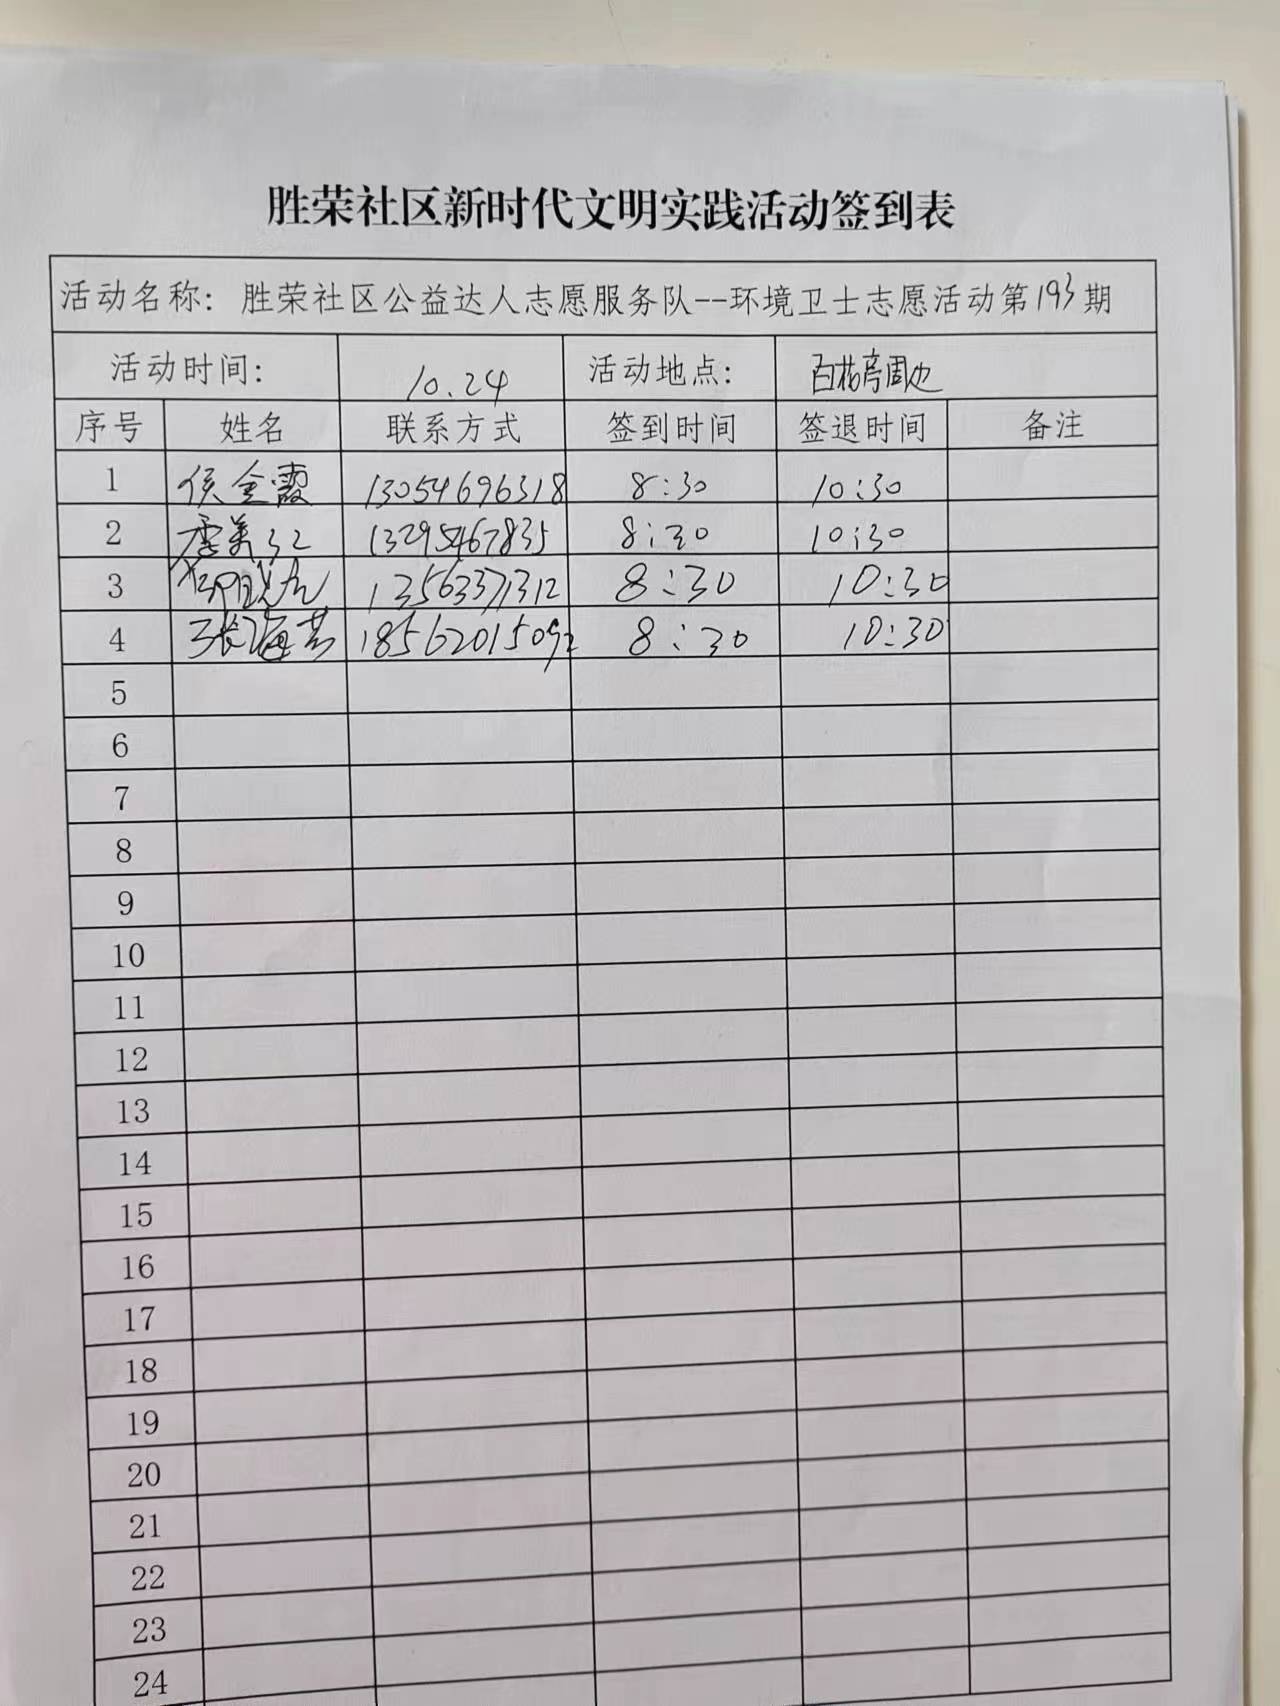 胜荣社区新时代文明实践活动签到表
活动名称：胜荣社区公益达人志愿服务队--环境卫士志愿活动第193期
活动时间： 10.24 活动地点： 百花亭周边
序号 姓名 联系方式 签到时间 签退时间 备注
1 侯金霞 13054696318 8:30 10:30
2 季美 13295467835 8:30 10:30
3 13563371312 8:30 10:30
4 张海芳 18562015092 8:30 10:30
5
6
7
8
9
10
11
12
13
14
15
16
17
18
19
20
21
22
23
24